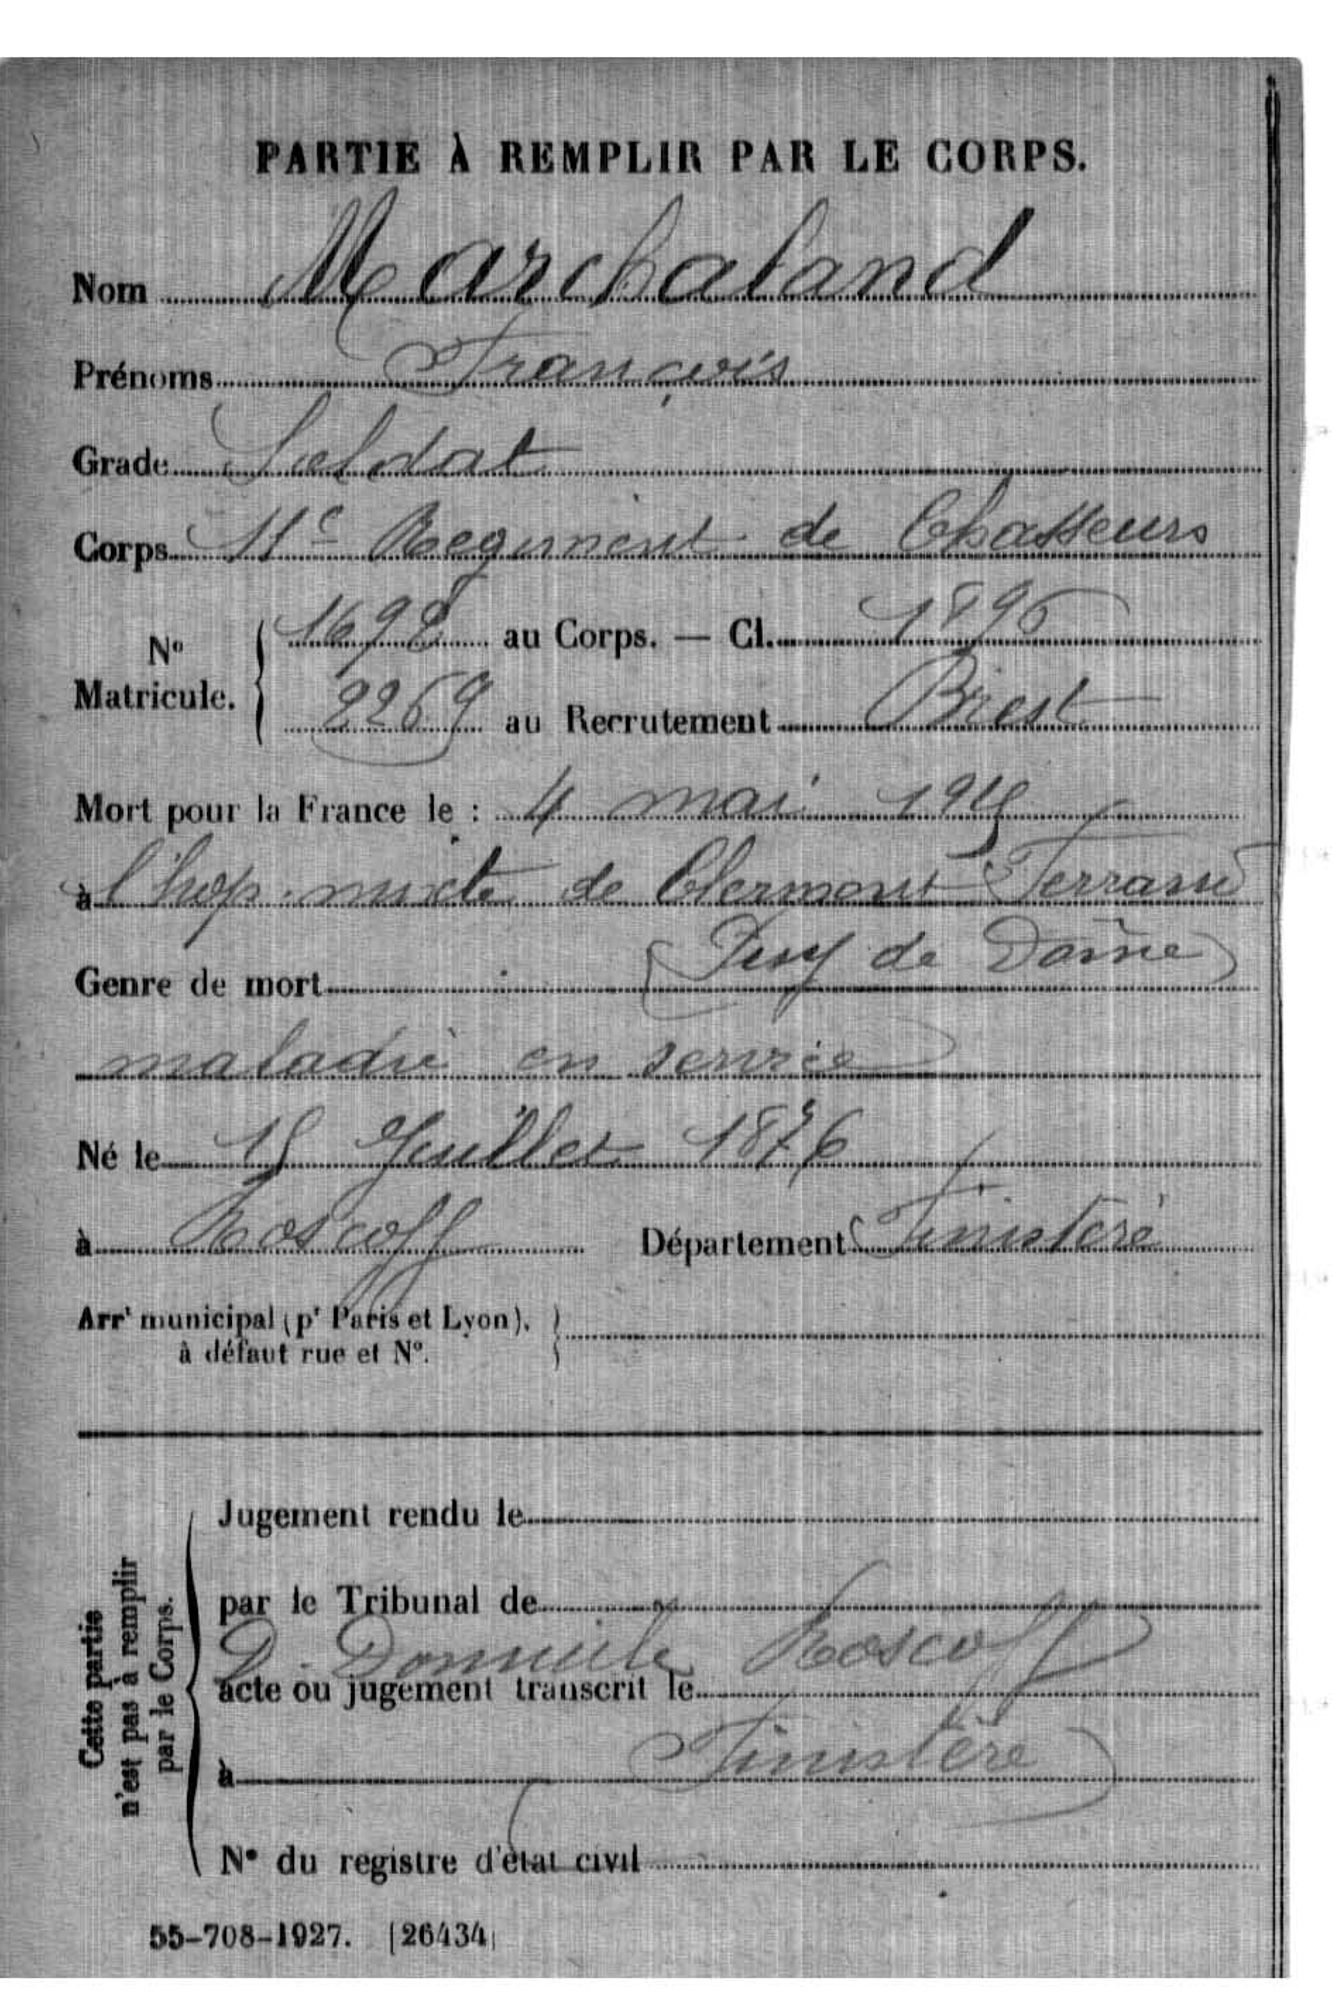 PARTIE À REMPLIR PAR LE CORPS.
Nom Marchaland
Prénoms François
Grade Soldat
Corps 11e Regiment de Chasseurs
No Matricule. { 1698 au Corps. — Cl. 1896
2269 au Recrutement Brest
Mort pour la France le : 4 mai 1915
à l'hop. mixte de Clermont Ferrand
(Puy de Dôme)
Genre de mort
maladie en service
Né le 15 Juillet 1876
à Roscoff Département Finistère
Arrt municipal (pr Paris et Lyon),
à défaut rue et No.
Cette partie
n'est pas à remplir
par le Corps.
Jugement rendu le
par le Tribunal de
D. Domicile Roscoff
acte ou jugement transcrit le
à Finistère
No du registre d'état civil
55-708-1927. [26434]